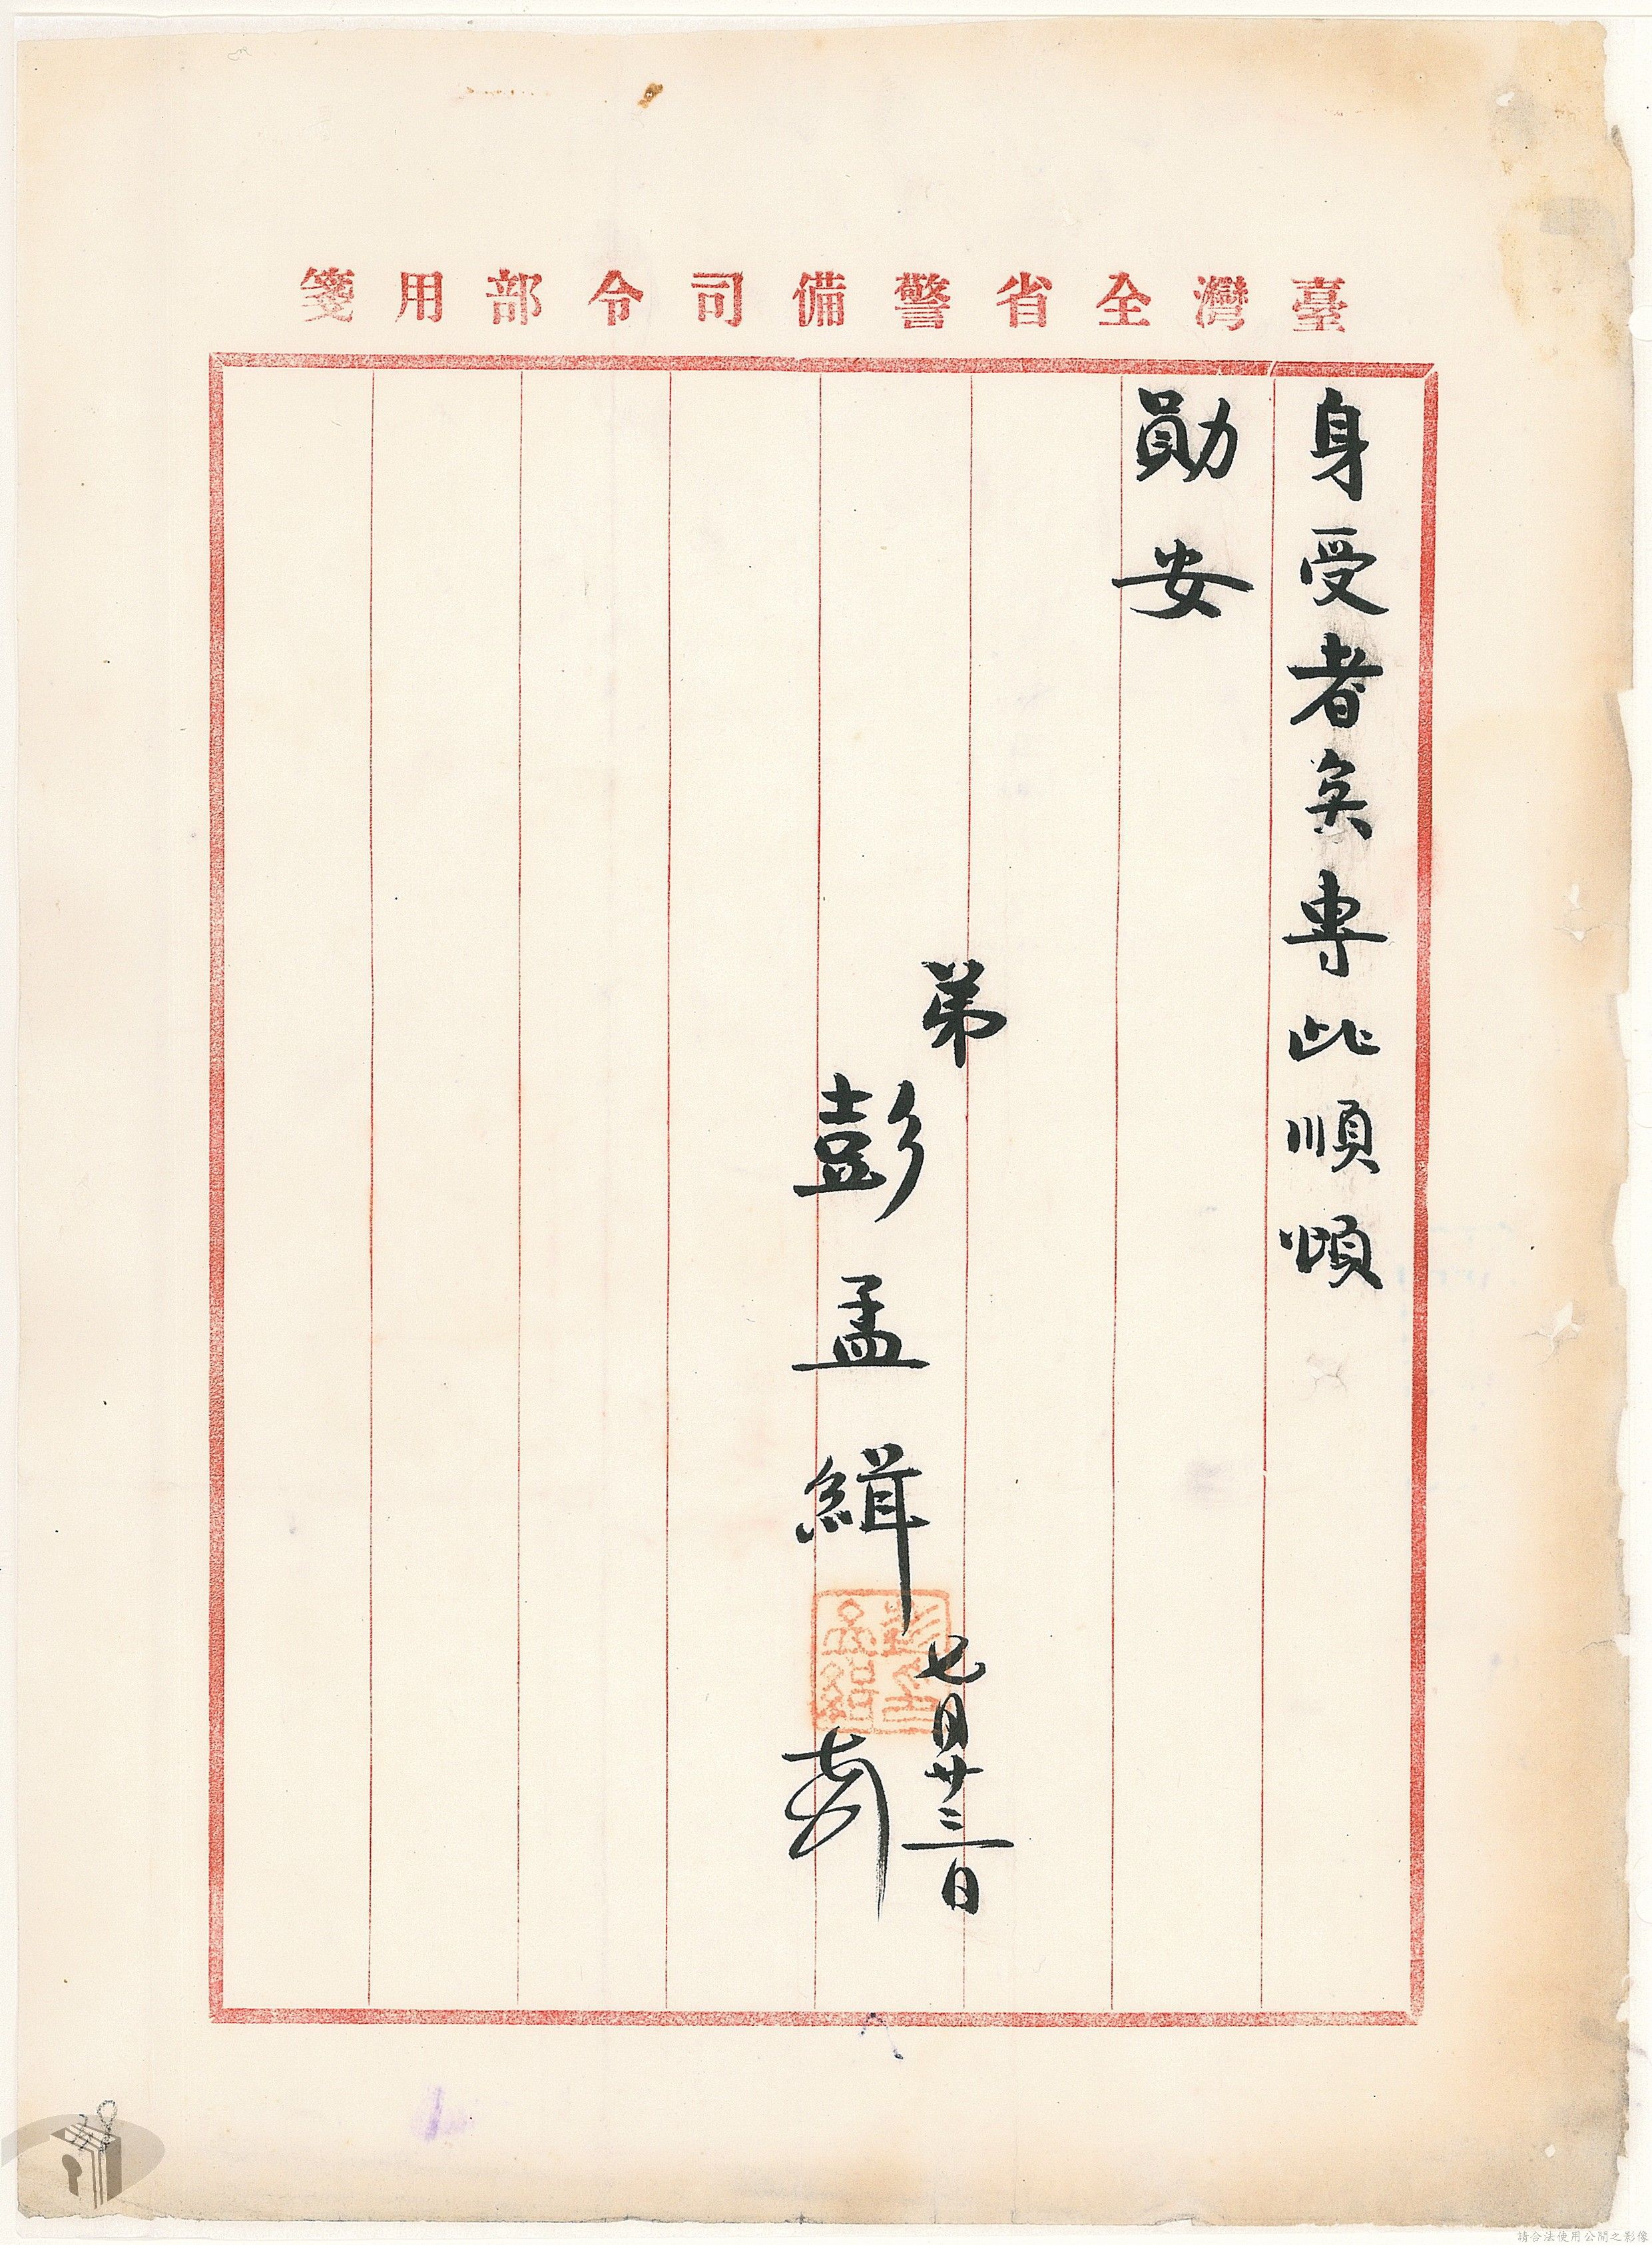 臺灣全省警備司令部用箋
身受者矣專此順頌
勛安
弟
彭孟緝
七月廿三日
請合法使用公開之影像